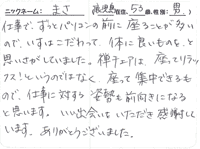 ニックネーム: まさ 鹿児島県在住, 53歳, 性別: 男)
仕事で、ずっとパソコンの前に座ることが多い
ので、いすはこだわって、体に良いものを、と
思いさがしていました。禅チェアは、座ってリラッ
クス!というのではなく、座って集中できるも
ので、仕事に対する姿勢も前向きになろう
と思います。いい出会いをいただき感謝してい
ます。ありがとうございました。